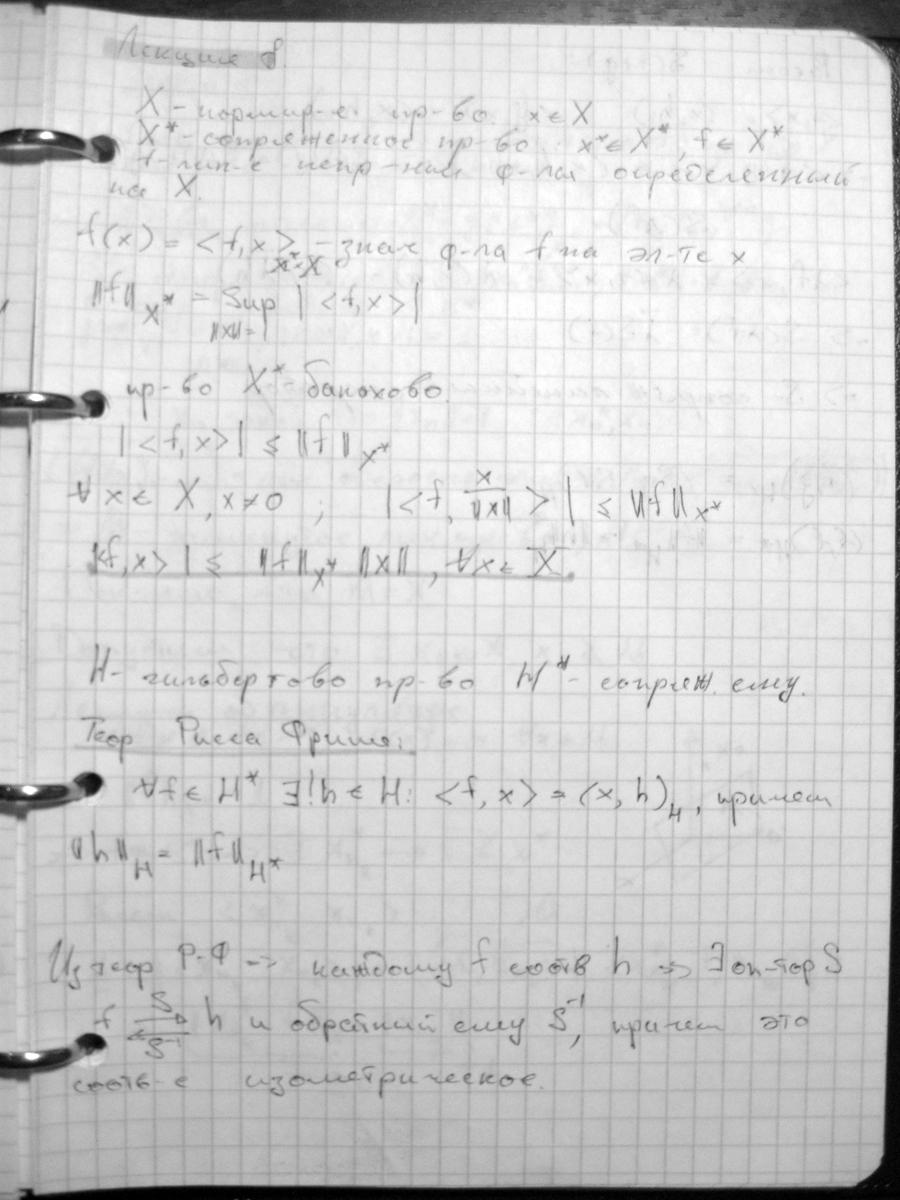 Лекция 8.
X - нормир-е пр-во x ∈ X
X* - сопряженное пр-во. x* ∈ X*, f ∈ X*
f - лин-е непр-ный ф-лал определенный
на X.
f(x) = <f, x>_{X*×X} - знач ф-ла f на эл-те x
||f||_{X*} = Sup_{||x||=1} |<f, x>|
пр-во X* банахово.
|<f, x>| ≤ ||f||_{X*}
∀ x ∈ X, x ≠ 0 ; |<f, x/||x||>| ≤ ||f||_{X*}
|<f, x>| ≤ ||f||_{X*} ||x||, ∀x ∈ X.
H - гильбертово пр-во H* - сопряж. ему.
Теор Рисса Фрише:
∀f ∋ H* ∃! h ∋ H: <f, x> = (x, h)_H, причем
||h||_H = ||f||_{H*}
Из теор Р-Ф => каждому f соотв h => ∃ оп-тор S
f ⇄ h (S, S⁻¹) и обратный ему S⁻¹, причем это
соотв-е изометрическое.